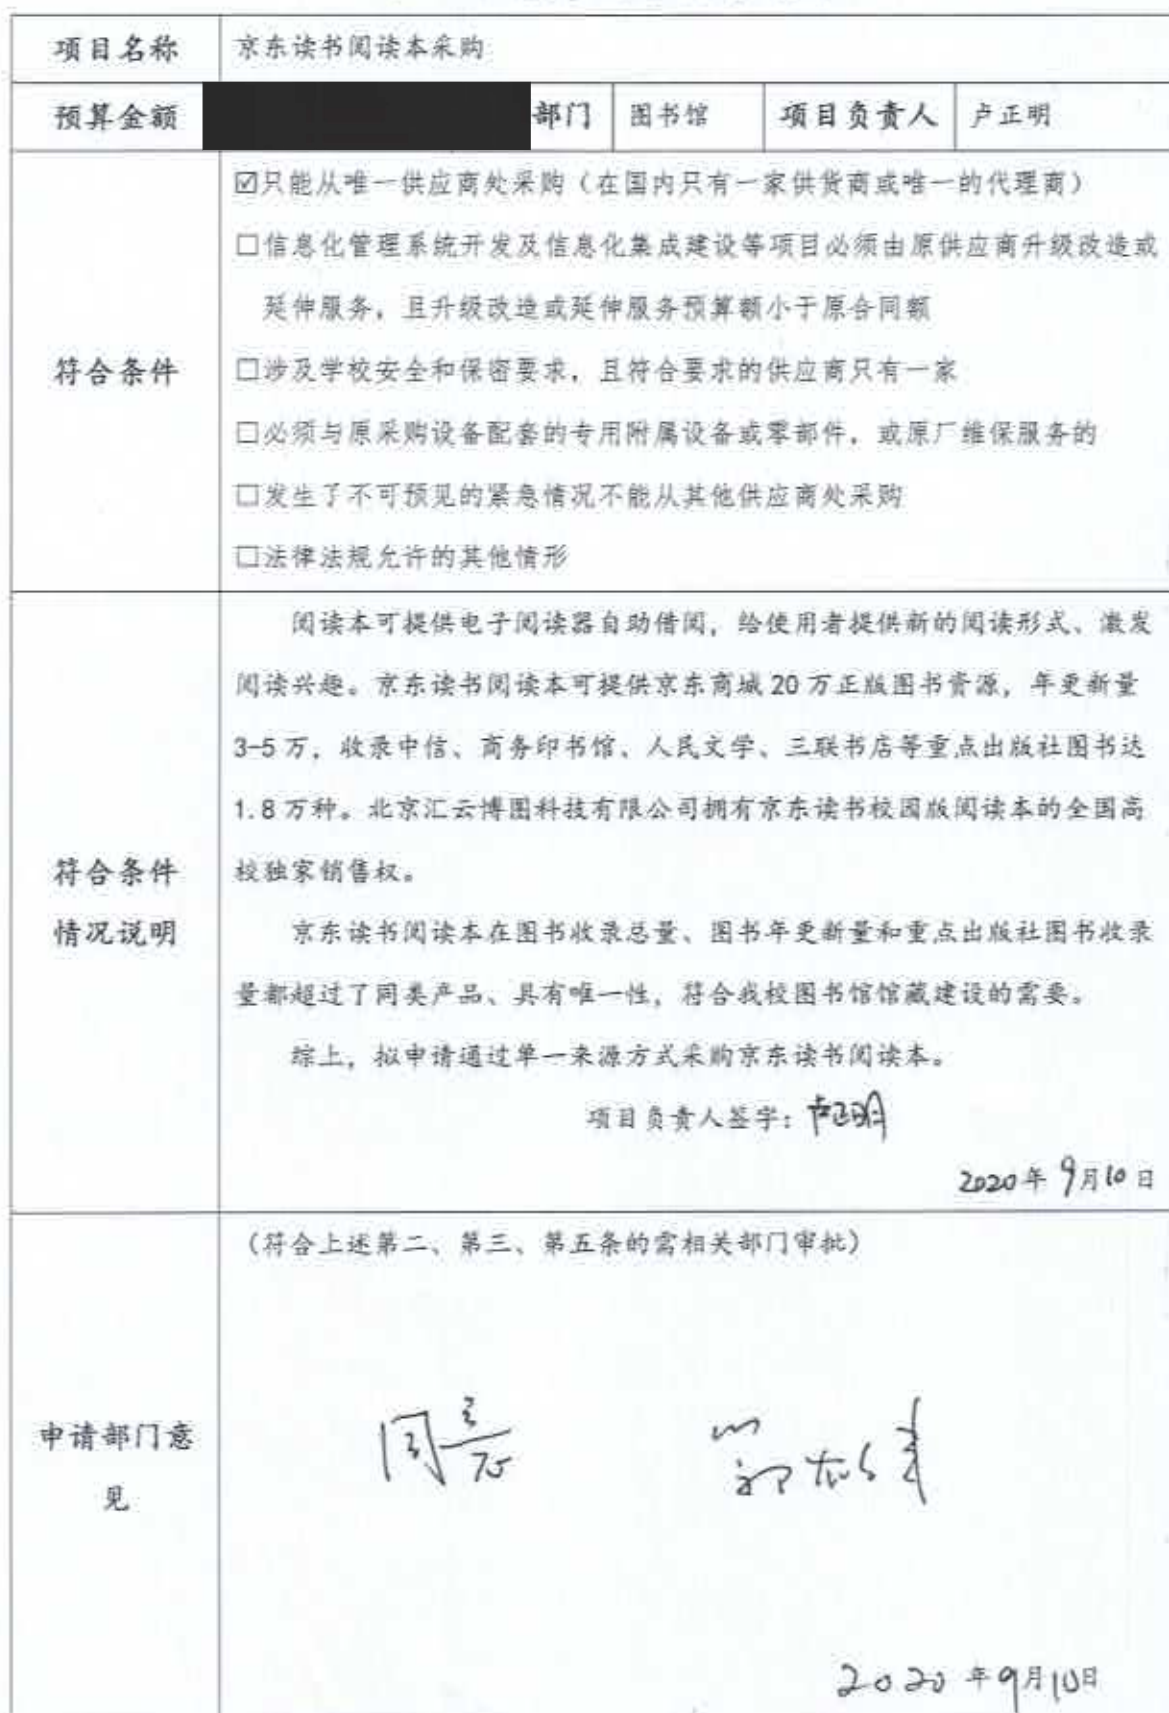 项目名称 京东读书阅读本采购
预算金额 部门 图书馆 项目负责人 卢正明
☑只能从唯一供应商处采购（在国内只有一家供货商或唯一的代理商）
□信息化管理系统开发及信息化集成建设等项目必须由原供应商升级改造或
延伸服务，且升级改造或延伸服务预算额小于原合同额
符合条件
□涉及学校安全和保密要求，且符合要求的供应商只有一家
□必须与原采购设备配套的专用附属设备或零部件，或原厂维保服务的
□发生了不可预见的紧急情况不能从其他供应商处采购
□法律法规允许的其他情形
阅读本可提供电子阅读器自助借阅，给使用者提供新的阅读形式、激发
阅读兴趣。京东读书阅读本可提供京东商城20万正版图书资源，年更新量
3-5万，收录中信、商务印书馆、人民文学、三联书店等重点出版社图书达
1.8万种。北京汇云博图科技有限公司拥有京东读书校园版阅读本的全国高
校独家销售权。
符合条件
情况说明
京东读书阅读本在图书收录总量、图书年更新量和重点出版社图书收录
量都超过了同类产品、具有唯一性，符合我校图书馆馆藏建设的需要。
综上，拟申请通过单一来源方式采购京东读书阅读本。
项目负责人签字：卢正明
2020年9月10日
（符合上述第二、第三、第五条的需相关部门审批）
申请部门意
见
2020年9月10日